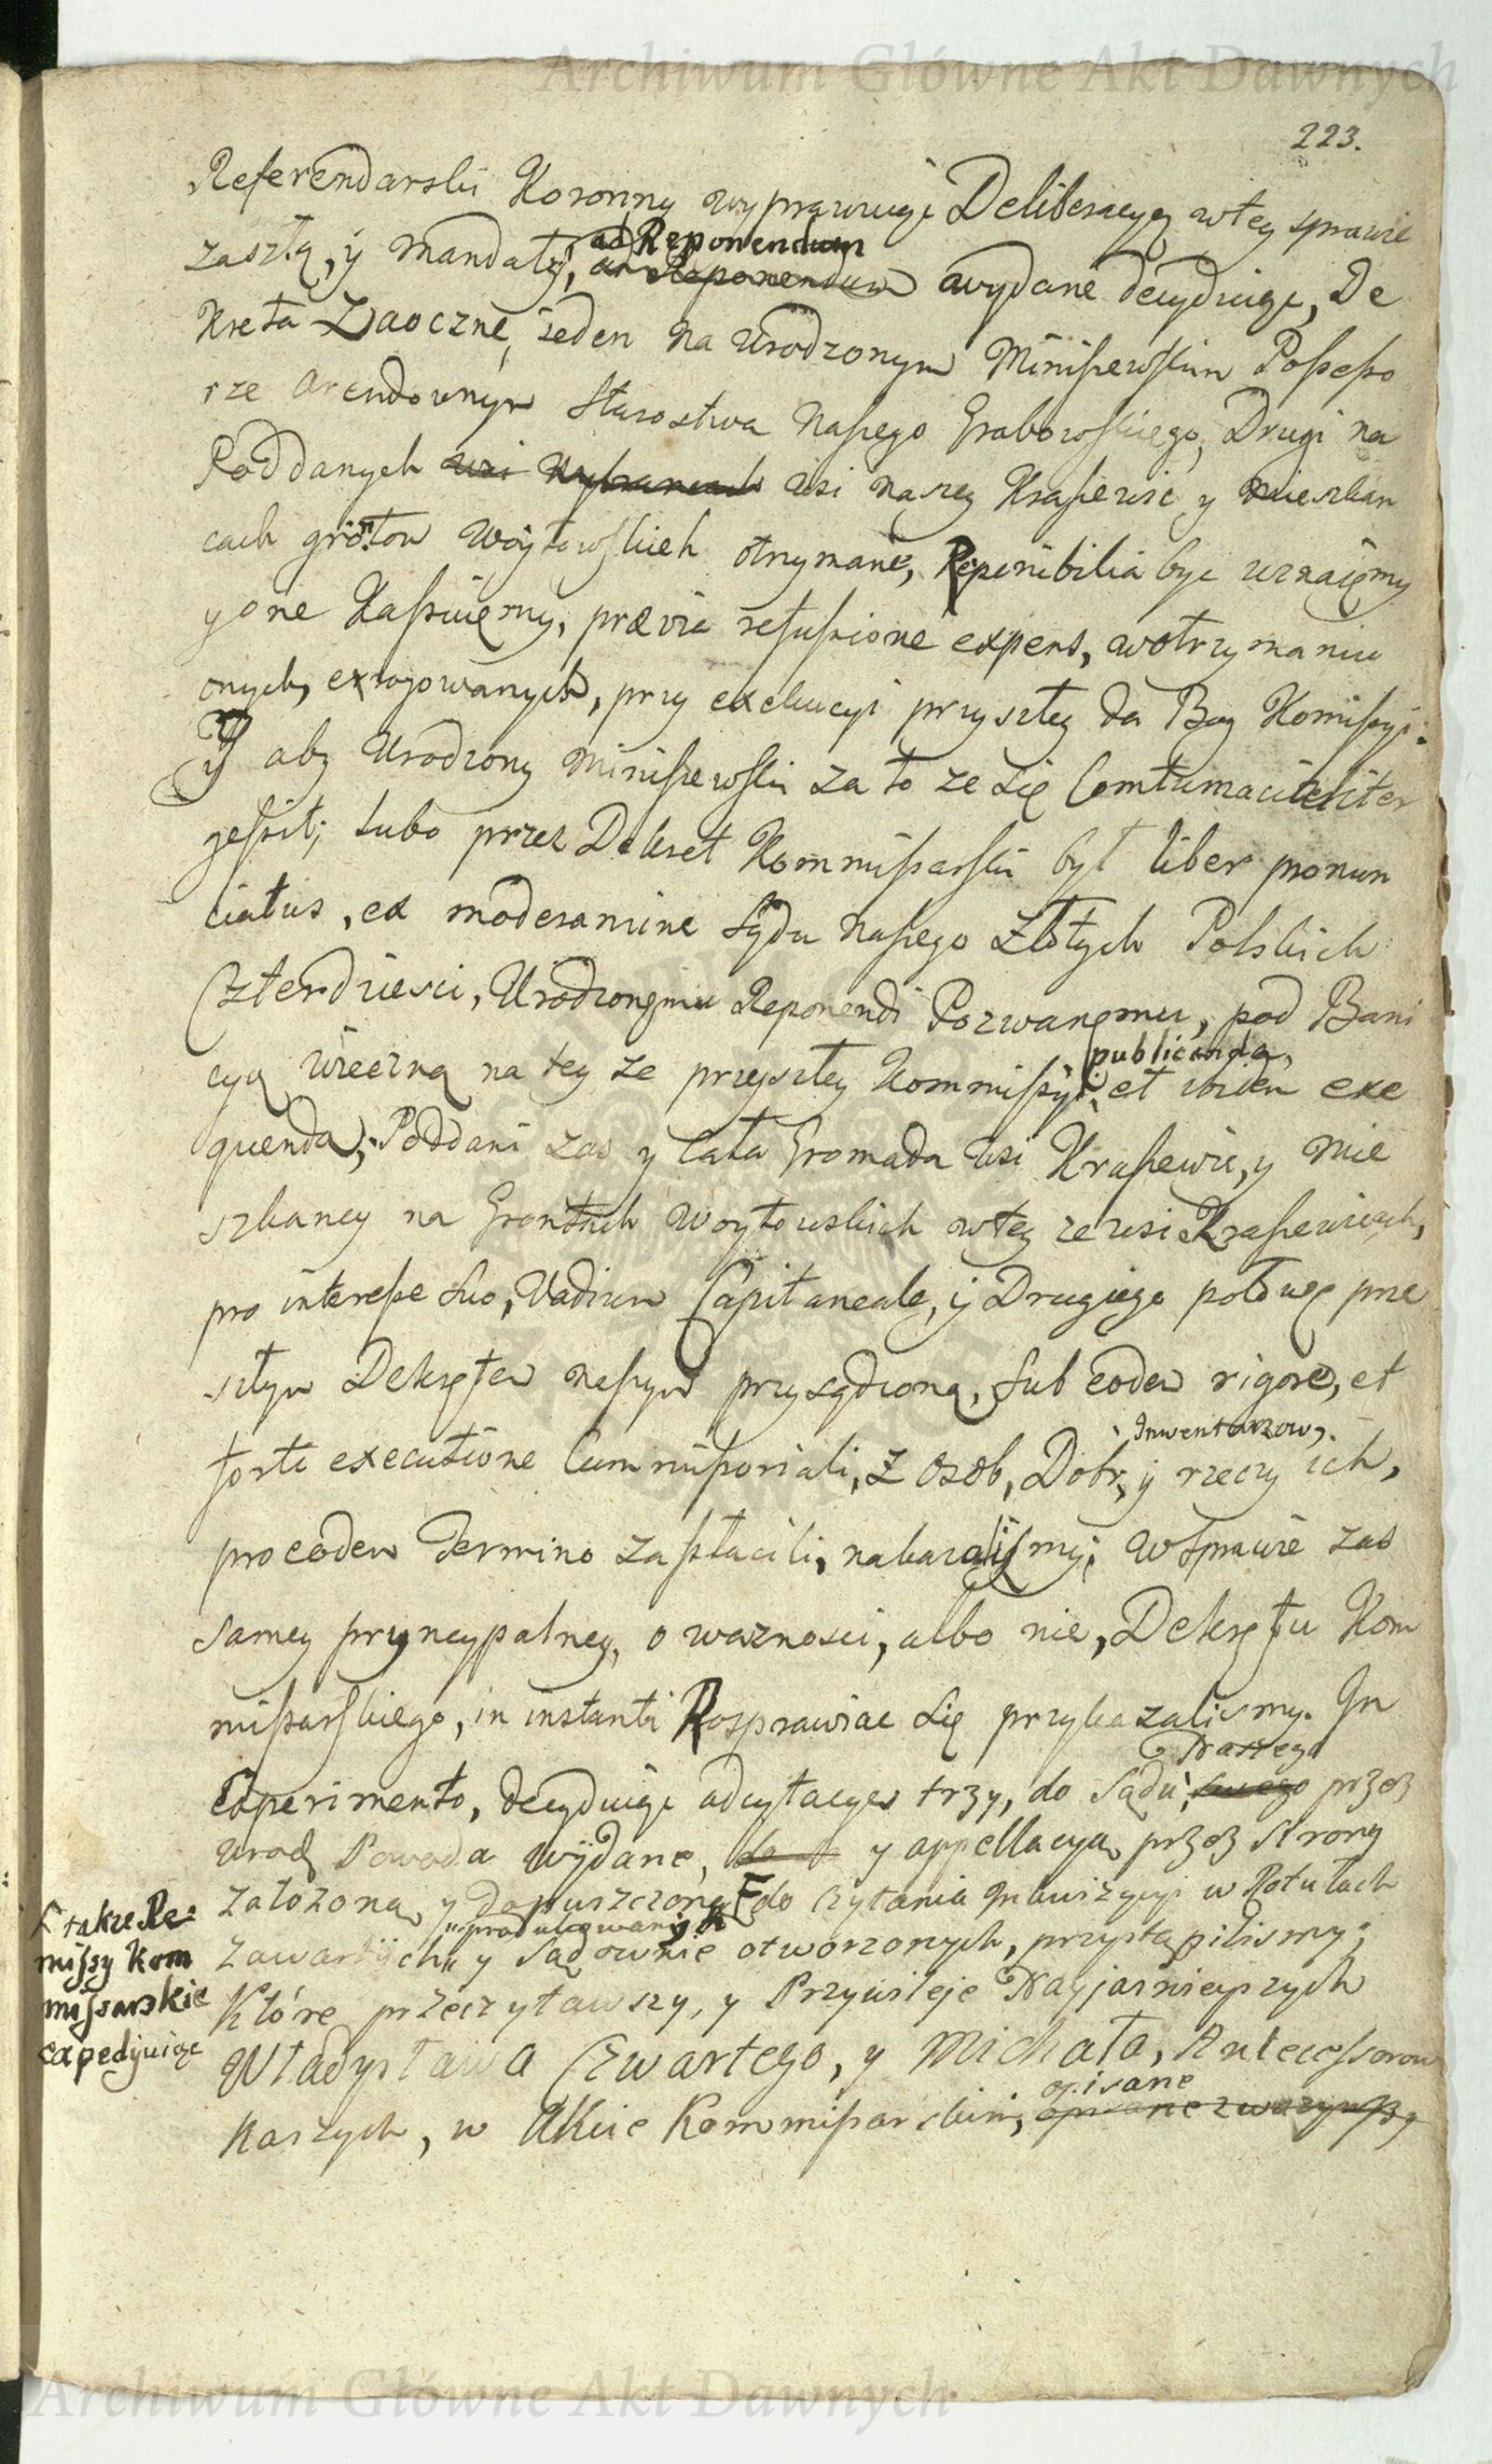 Archiwum Główne Akt Dawnych
223.
Referendarski Koronny wyprawuiąc Deliberacyą wtey sprawie
ad Reponendum
zaszłą, y Mandaty, ad Reponendum wydane decyduiąc, De
kreta Zaoczne, ieden na Urodzonym Miniszewskim Possesso
rze Arendownym Starostwa Naszego Grabowskiego, Drugi na
Poddanych wsi wsi naszey Kraszewic y mieszkan
cach grontow Woytowskich otrzymane, Reponibilia byc uznaięmy
y one Kassuięmy, prævia refusione expens, wotrzymaniu
onych, exrogowanych, przy exekucyi przyszłey da Bog Komissyi:
Y aby Urodzony Miniszewski za to ze się Comtumaciteliter
gessit; lubo przez Dekret Kommissarski był liber pronun
ciatus, ex moderamine Sądu Naszego Złotych Polskich
Czterdziesci, Urodzonęmu Reponendi Pozwanęmu, pod Bani
publicanda,
cyą wieczną na tey ze przyszłey Kommissyi, et ibidem exe
quenda; Poddani zas y cała Gromada wsi Kraszewic, y mie
szkancy na Grontach Woytowskich wtey ze wsi Kraszewicach,
pro interesse suo, Vadium Capitaneale, y Drugiego połowę prze
szłym Dekrętem naszym przysądzoną, sub eodem rigore, et
Inwentarzow,
forti executione Commissoriali, z osob, Dobr, y rzeczy ich,
pro eodem Termino zapłacili, nakazalismy; W Sprawie zas
samey pryncypalney, o wazności, albo nie, Dekrętu Kom
missarskiego, in instanti Rosprawiac się przykazalismy. In
Naszego
Experimento, decyduiąc adcytacye trzy, do Sądu, swego przez
Urod Powoda wÿdane, y appellacyą przez strony
założoną y dopuszczoną F do czytania Inkwizycyi w Rotułach
F także Re:
missy Kom
missarskie
expedyuiąc
produkowanych
zawartÿch y Sądownie otworzonych, przystąpilismy;
Które przeczytawszy, y Przywileje Nayjaśnieyszych
Władysława Czwartego, y Michała, Antecessorow
opisane
Naszych, w Akcie Kommissarskim, opisane zwazywszy
Archiwum Główne Akt Dawnych